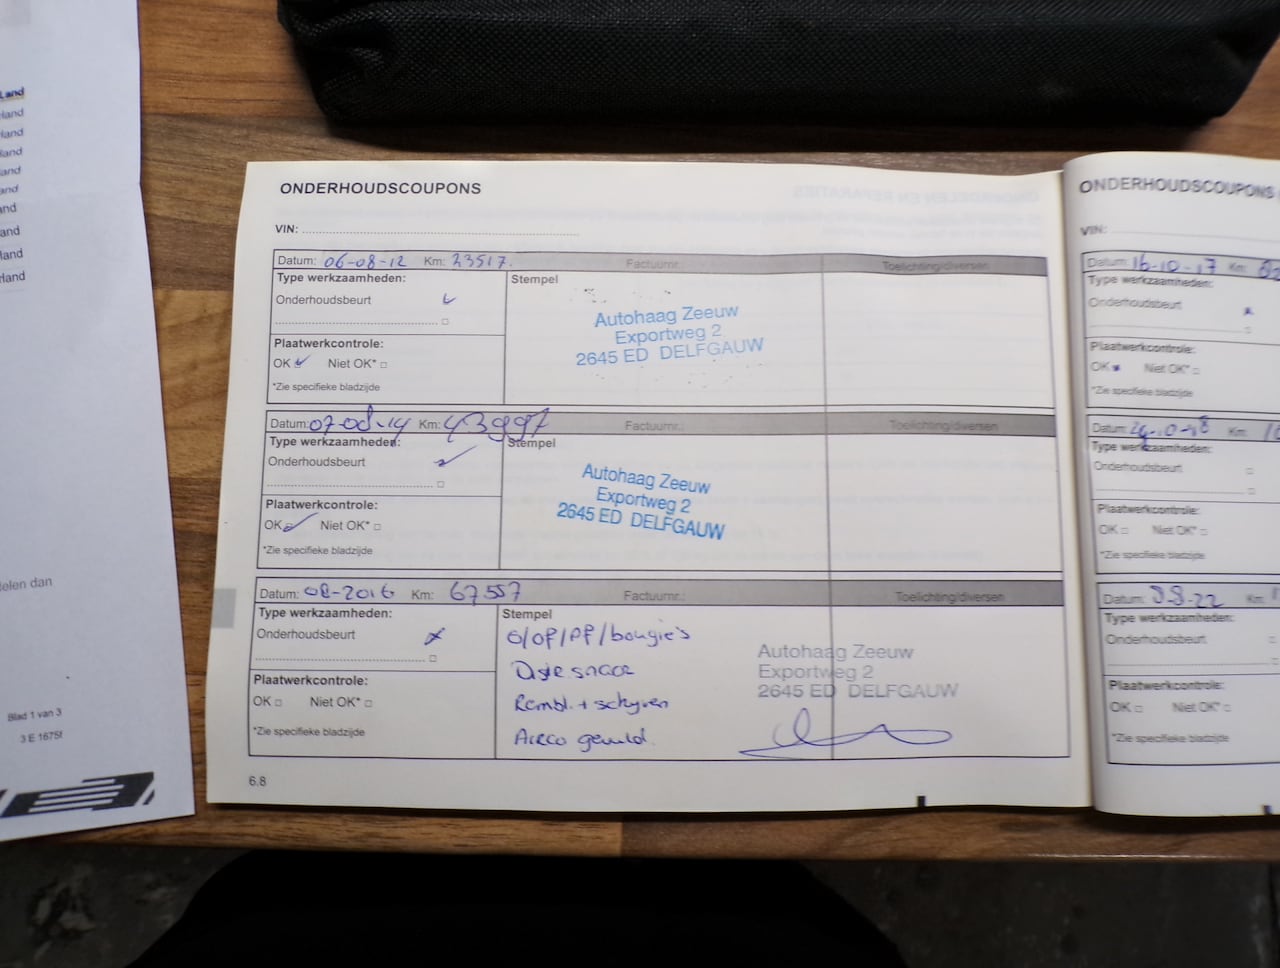 Land
rland
rland
land
land
and
nd
and
land
rland
elen dan
Blad 1 van 3
3 E 1675f
ONDERHOUDSCOUPONS
VIN:
Datum: 06-08-12 Km: 23517. Factuurnr.: Toelichting/diversen
Type werkzaamheden: Stempel
Onderhoudsbeurt
Autohaag Zeeuw
Exportweg 2
2645 ED DELFGAUW
Plaatwerkcontrole:
OK Niet OK*
*Zie specifieke bladzijde
Datum: 07-08-14 Km: 43997 Factuurnr.: Toelichting/diversen
Type werkzaamheden: Stempel
Onderhoudsbeurt
Autohaag Zeeuw
Exportweg 2
2645 ED DELFGAUW
Plaatwerkcontrole:
OK Niet OK*
*Zie specifieke bladzijde
Datum: 08-2016 Km: 67557 Factuurnr.: Toelichting/diversen
Type werkzaamheden: Stempel
Onderhoudsbeurt
O/OF/PF/bougie's
Rembl. + schyven
Airco gevuld.
Autohaag Zeeuw
Exportweg 2
2645 ED DELFGAUW
Plaatwerkcontrole:
OK Niet OK*
*Zie specifieke bladzijde
6.8
ONDERHOUDSCOUPONS
VIN:
Datum: 16-10-17 Km:
Type werkzaamheden:
Onderhoudsbeurt
Plaatwerkcontrole:
OK Niet OK*
*Zie specifieke bladzijde
Datum: 24-10-18 Km:
Type werkzaamheden:
Onderhoudsbeurt
Plaatwerkcontrole:
OK Niet OK*
*Zie specifieke bladzijde
Datum: Km:
Type werkzaamheden:
Onderhoudsbeurt
Plaatwerkcontrole:
OK Niet OK*
*Zie specifieke bladzijde